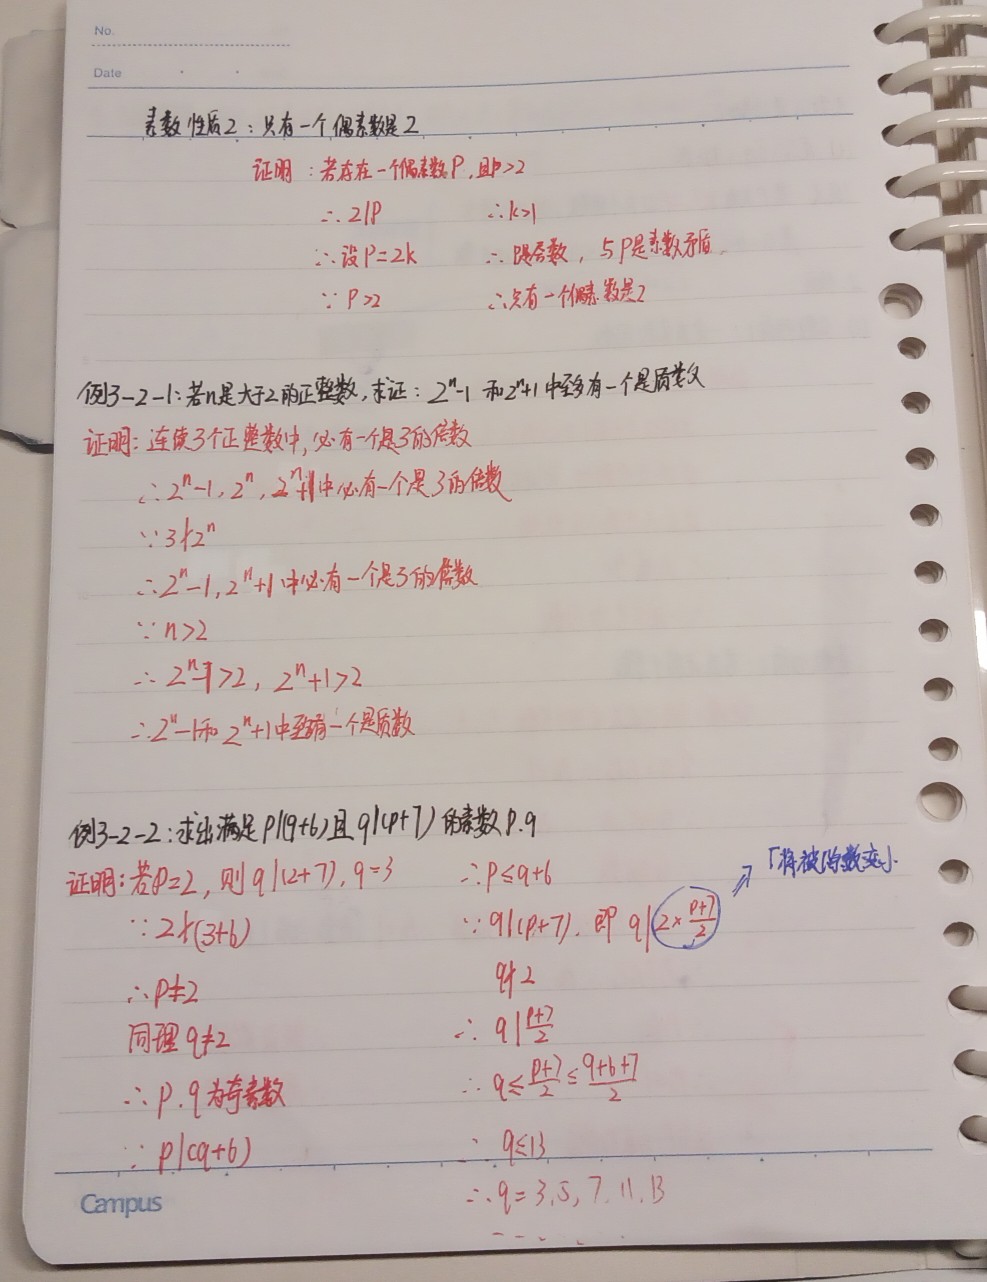 No.
Date
素数性质2：只有一个偶素数是2
证明：若存在一个偶素数P，且p>2
∴2|P ∴k>1
∴设P=2k ∴P是合数，与P是素数矛盾。
∵P>2 ∴只有一个偶素数是2
例3-2-1：若n是大于2的正整数，求证：2ⁿ-1 和2ⁿ+1中至多有一个是质数
证明：连续3个正整数中，必有一个是3的倍数
∴2ⁿ-1，2ⁿ，2ⁿ+1中必有一个是3的倍数
∵3∤2ⁿ
∴2ⁿ-1，2ⁿ+1中必有一个是3的倍数
∵n>2
∴2ⁿ-1>2，2ⁿ+1>2
∴2ⁿ-1和2ⁿ+1中至多有一个是质数
例3-2-2：求出满足p|(q+6)且q|(p+7)的素数p.q
「将被除数变小
证明：若p=2，则q|(2+7)，q=3 ∴p≤q+6
∵2∤(3+6) ∵q|(p+7)．即 q|2×(p+7)/2
∴p≠2 q∤2
同理q≠2 ∴q|(p+7)/2
∴p.q为奇素数 ∴q≤(p+7)/2≤(q+6+7)/2
∵p|(q+6) ∴q≤13
∴q=3,5,7.11.13
Campus